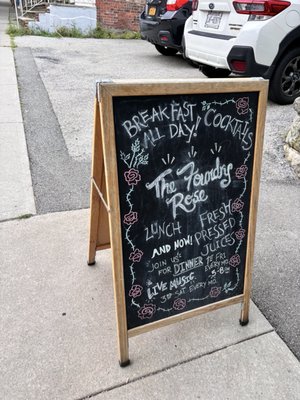 BREAKFAST
ALL DAY!
COCKTAILS
The Foundry
Rose
LUNCH
AND NOW!
FRESH
PRESSED
JUICES
JOIN US
FOR DINNER 1st FRI
EVERY MO.
LIVE MUSIC 5-8PM
3rd SAT. EVERY MO.